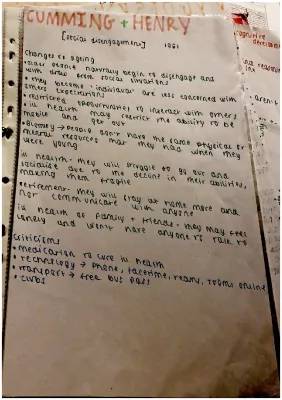 CUMMING + HENRY
[social disengagement] 1961
Changes to ageing
• older people naturally begin to disengage and
with draw from social situations
• they become 'individual' are less concerned with
others expectations
• restricted opportunities to interact with others
• ill health → may restrict the ability to be
mobile and get out
• Biology → people don't have the same physical or
mental resources that they had when they
were young
ill health - they will struggle to go out and
socialise due to the decline in their abilities,
making them fragile
retirement - they will stay at home more and
not communicate with anyone
ill health of family + friends - they may feel
lonely and won't have anyone to talk to
criticisms
• medication to cure ill health
• technology → phone, facetime, teams, zooms online
• transport → free bus pass
• clubs
cognitive